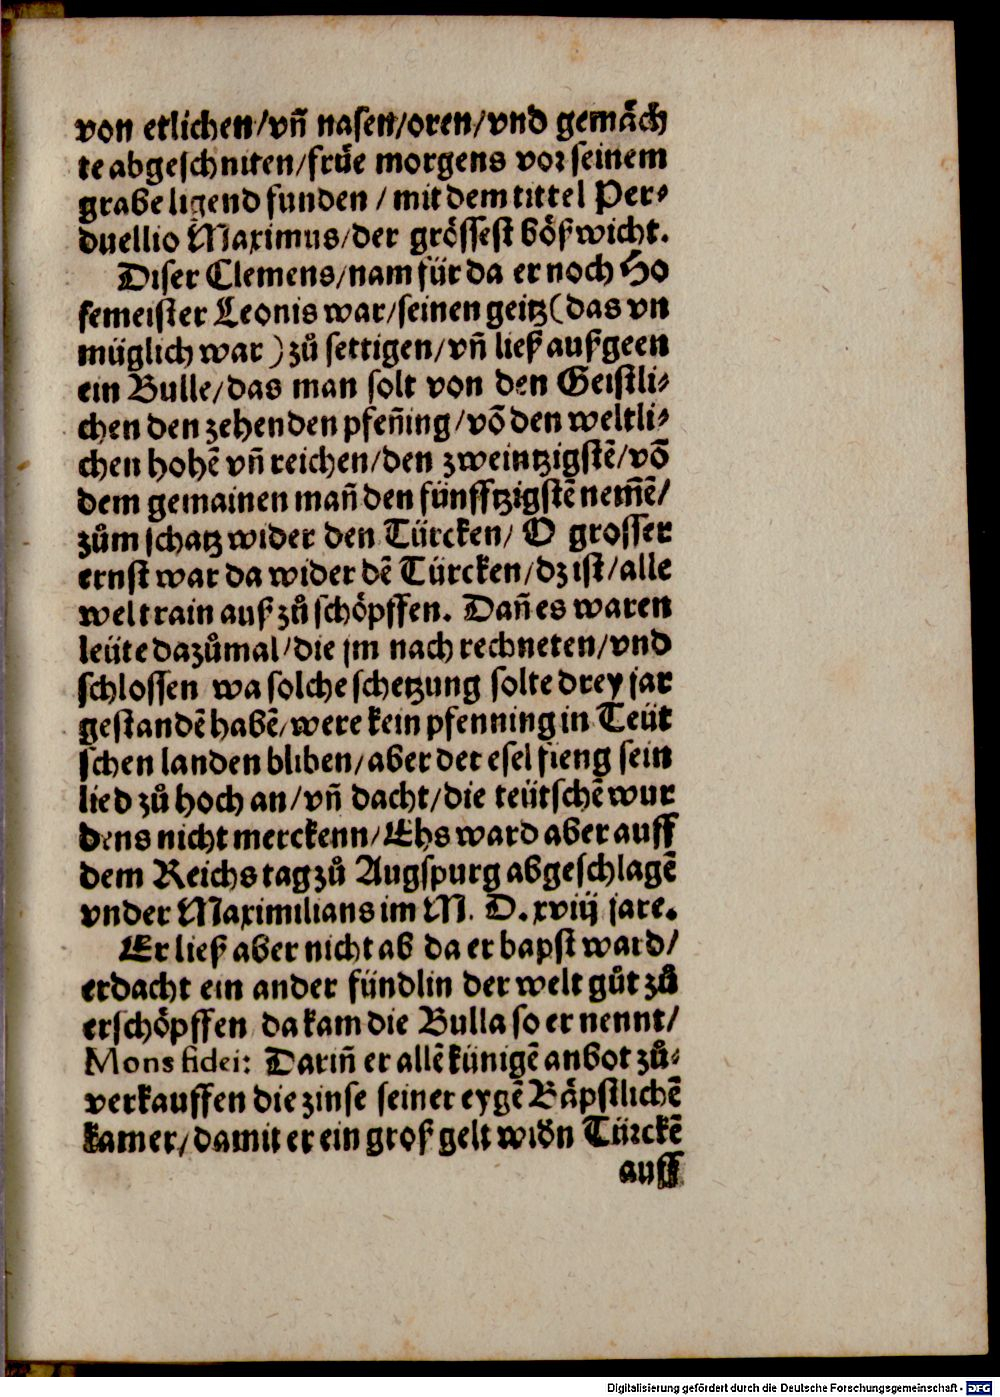 von etlichen/vñ nasen/oren/vnd gemäch
te abgeschniten/frůe morgens vor seinem
grabe ligend funden / mit dem tittel Per-
duellio Maximus/der grössest bößwicht.
Diser Clemens/nam für da er noch Ho
femeister Leonis war/seinen geitz(das vn
müglich war) zů settigen/vñ ließ außgeen
ein Bulle/das man solt von den Geistli-
chen den zehenden pfeñing/võ den weltli-
chen hohẽ vñ reichen/den zweintzigstẽ/võ
dem gemainen mañ den fünfftzigstẽ nem̃ẽ/
zům schatz wider den Türcken/ O grosser
ernst war da wider dẽ Türcken/dz ist/alle
welt rain auß zů schöpffen. Dañ es waren
leüte dazůmal/die jm nach rechneten/vnd
schlossen wa solche schetzung solte drey jar
gestandẽ habẽ/were kein pfenning in Teüt
schen landen bliben/aber der esel fieng sein
lied zů hoch an/vñ dacht/die teütschẽ wur
dens nicht merckenn/Ehs ward aber auff
dem Reichstag zů Augspurg abgeschlagẽ
vnder Maximilians im M. D. xviij jare.
Er ließ aber nicht ab da er bapst ward/
erdacht ein ander fündlin der welt gůt zů
erschöpffen da kam die Bulla so er nennt/
Mons fidei: Dariñ er allẽ künigẽ anbot zů-
verkauffen die zinse seiner eygẽ Bäpstlichẽ
kamer/damit er ein groß gelt widn Türckẽ
auff
Digitalisierung gefördert durch die Deutsche Forschungsgemeinschaft - DFG